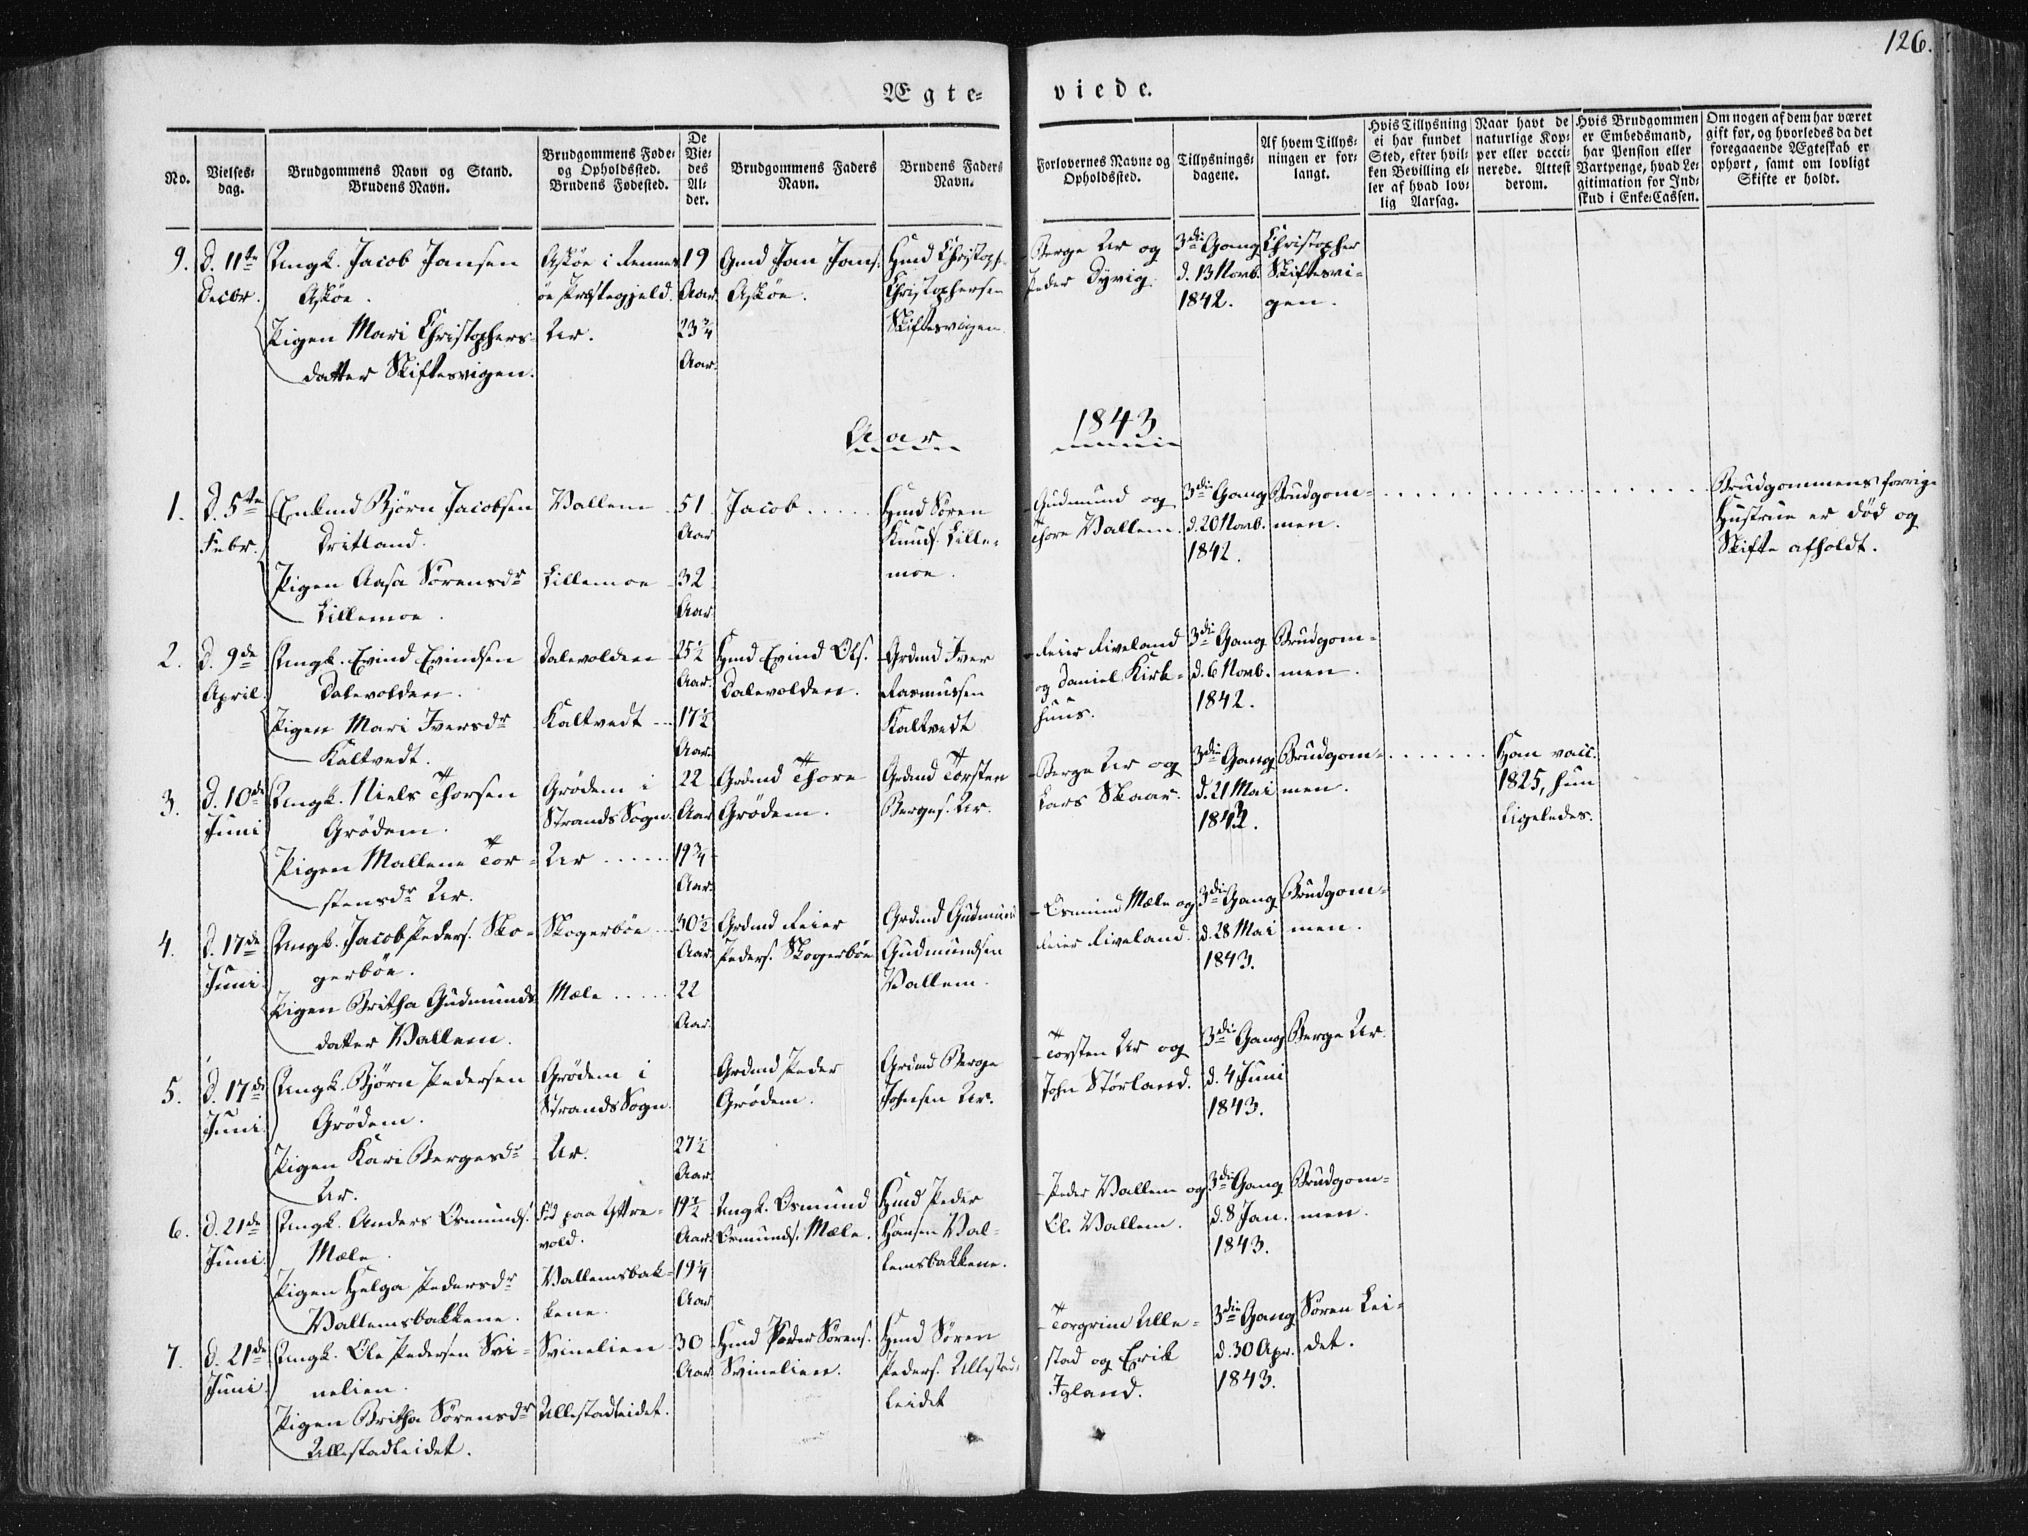 126.
Ægte- viede.
No.
Vielses-
dag.
Brudgommens Navn og Stand.
Brudens Navn.
Brudgommens Føde-
og Opholdssted.
Brudens Fødested.
De
Vie-
des
Al-
der.
Brudgommens Faders
Navn.
Brudens Faders
Navn.
Forlovernes Navne og
Opholdssted.
Tillysnings-
dagene.
Af hvem Tillys-
ningen er for-
langt.
Hvis Tillysning
ei har fundet
Sted, efter hvil-
ken Bevilling el-
ler af hvad lov-
lig Aarsag.
Naar havt de
naturlige Kop-
per eller vacci-
nerede. Attest
derom.
Hvis Brudgommen
er Embedsmand,
har Pension eller
Vartpenge, hvad Le-
gitimation for Ind-
skud i Enke-Cassen.
Om nogen af dem har været
gift før, og hvorledes da det
foregaaende Ægteskab er
ophørt, samt om lovligt
Skifte er holdt.
9.
d. 11te
Decbr.
Ungk. Jacob Jansen
Askøe.
Pigen Mari Christophers-
datter Skiftesvigen.
Askøe i Rennes-
øe Præstegjeld.
Ur.
19
Aar
23 3/4
Aar.
Gmd Jan Jans.
Askøe.
Hmd Christoph.
Christophersen
Skiftesvigen.
Berge Ur og
Peder Dyvig.
3die Gang
d. 13 Novb.
1842.
Christopher
Skiftesvi-
gen.
Aar 1843
1.
d. 5te
Febr.
Enkmd Bjørn Jacobsen
Dritland.
Pigen Aasa Sørensdr
Lillemoe.
Vallem
Lillemoe
51
Aar
32
Aar.
Jacob .....
Hmd Søren
Knuds. Lille-
moe.
Gudmund og
Thore Vallem.
3die Gang
d. 20 Novb.
1842.
Brudgom-
men.
Brudgommens forrige
Hustrue er død og
Skifte afholdt.
2.
d. 9de
April.
Ungk. Eyvind Eyvindsen
Dalevolden.
Pigen Mari Iversdr
Kaltvedt.
Dalevolden
Kaltvedt
25½
Aar.
17½
Aar.
Hmd Eyvind Ols.
Dalevolden.
Grdmd Iver
Rasmussen
Kaltvedt
Reier Riveland
og Daniel Kirk-
huus.
3die Gang
d. 6 Novb.
1842.
Brudgom-
men.
3.
d. 10de
Juni
Ungk. Niels Thorsen
Grødem.
Pigen Mallene Tor-
stensdr Ur.
Grødem i
Strands Sogn.
Ur .....
22
Aar
19 3/4
Aar.
Grdmd Thore
Grødem.
Grdmd Torsten
Berges. Ur.
Berge Ur og
Lars Skaar.
3die Gang
d. 21 Mai
1843.
Brudgom-
men.
Ham vacc.
1825, hun
Ligeledes.
4.
d. 17de
Juni.
Ungk. Jacob Peders. Sko-
gerbøe.
Pigen Britha Gudmunds-
datter Vallem.
Skogerbøe
Mæle .....
30½
Aar.
22
Aar.
Grdmd Reier
Peders. Skogerbøe
Grdmd Gudmund
Gudmundsen
Vallem.
Osmund Mæle og
Reier Riveland.
3die Gang
d. 28 Mai
1843.
Brudgom-
men.
5.
d. 17de
Juni.
Ungk. Bjørn Pedersen
Grødem.
Pigen Kari Bergesdr
Ur.
Grødem i
Strands Sogn.
Ur.
27½
Aar.
Grdmd Peder
Grødem.
Grdmd Berge
Johnsen Ur.
Torsten Ur og
John Størland.
3die Gang
d. 4 Juni
1843.
Berge Ur.
6.
d. 21de
Juni.
Ungk. Anders Osmunds.
Mæle.
Pigen Helga Pedersdr
Vallemsbakkene.
Fød paa Yttre-
vold.
Vallemsbak-
kene.
19½
Aar.
19¼
Aar
Ungk. Osmund
Osmunds. Mæle.
Hmd Peder
Hansen Val-
lemsbakkene.
Peder Vallem og
Ol. Vallem.
3die Gang
d. 8 Jan.
1843.
Brudgom-
men.
7.
d. 21de
Juni
Ungk. Ole Pedersen Svi-
nelien.
Pigen Britha Sørensdr
Ullestadleidet.
Svinelien
Ullestadleidet.
30
Aar.
Hmd Peder Sørens.
Svinelien.
Hmd Søren
Peders. Ullestad-
leidet
Torgrim Ulle-
stad og Erik
Igland.
3die Gang
d. 30 Apr.
1843.
Søren Lei-
det.